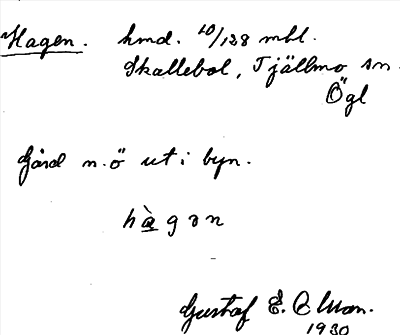 Hagen. hmd. 10/128 mtl.
Skallebol, Tjällmo sn.
Ögl
Gård n.ö ut i byn.
hàgǝn
Gustaf E. Olson.
1930